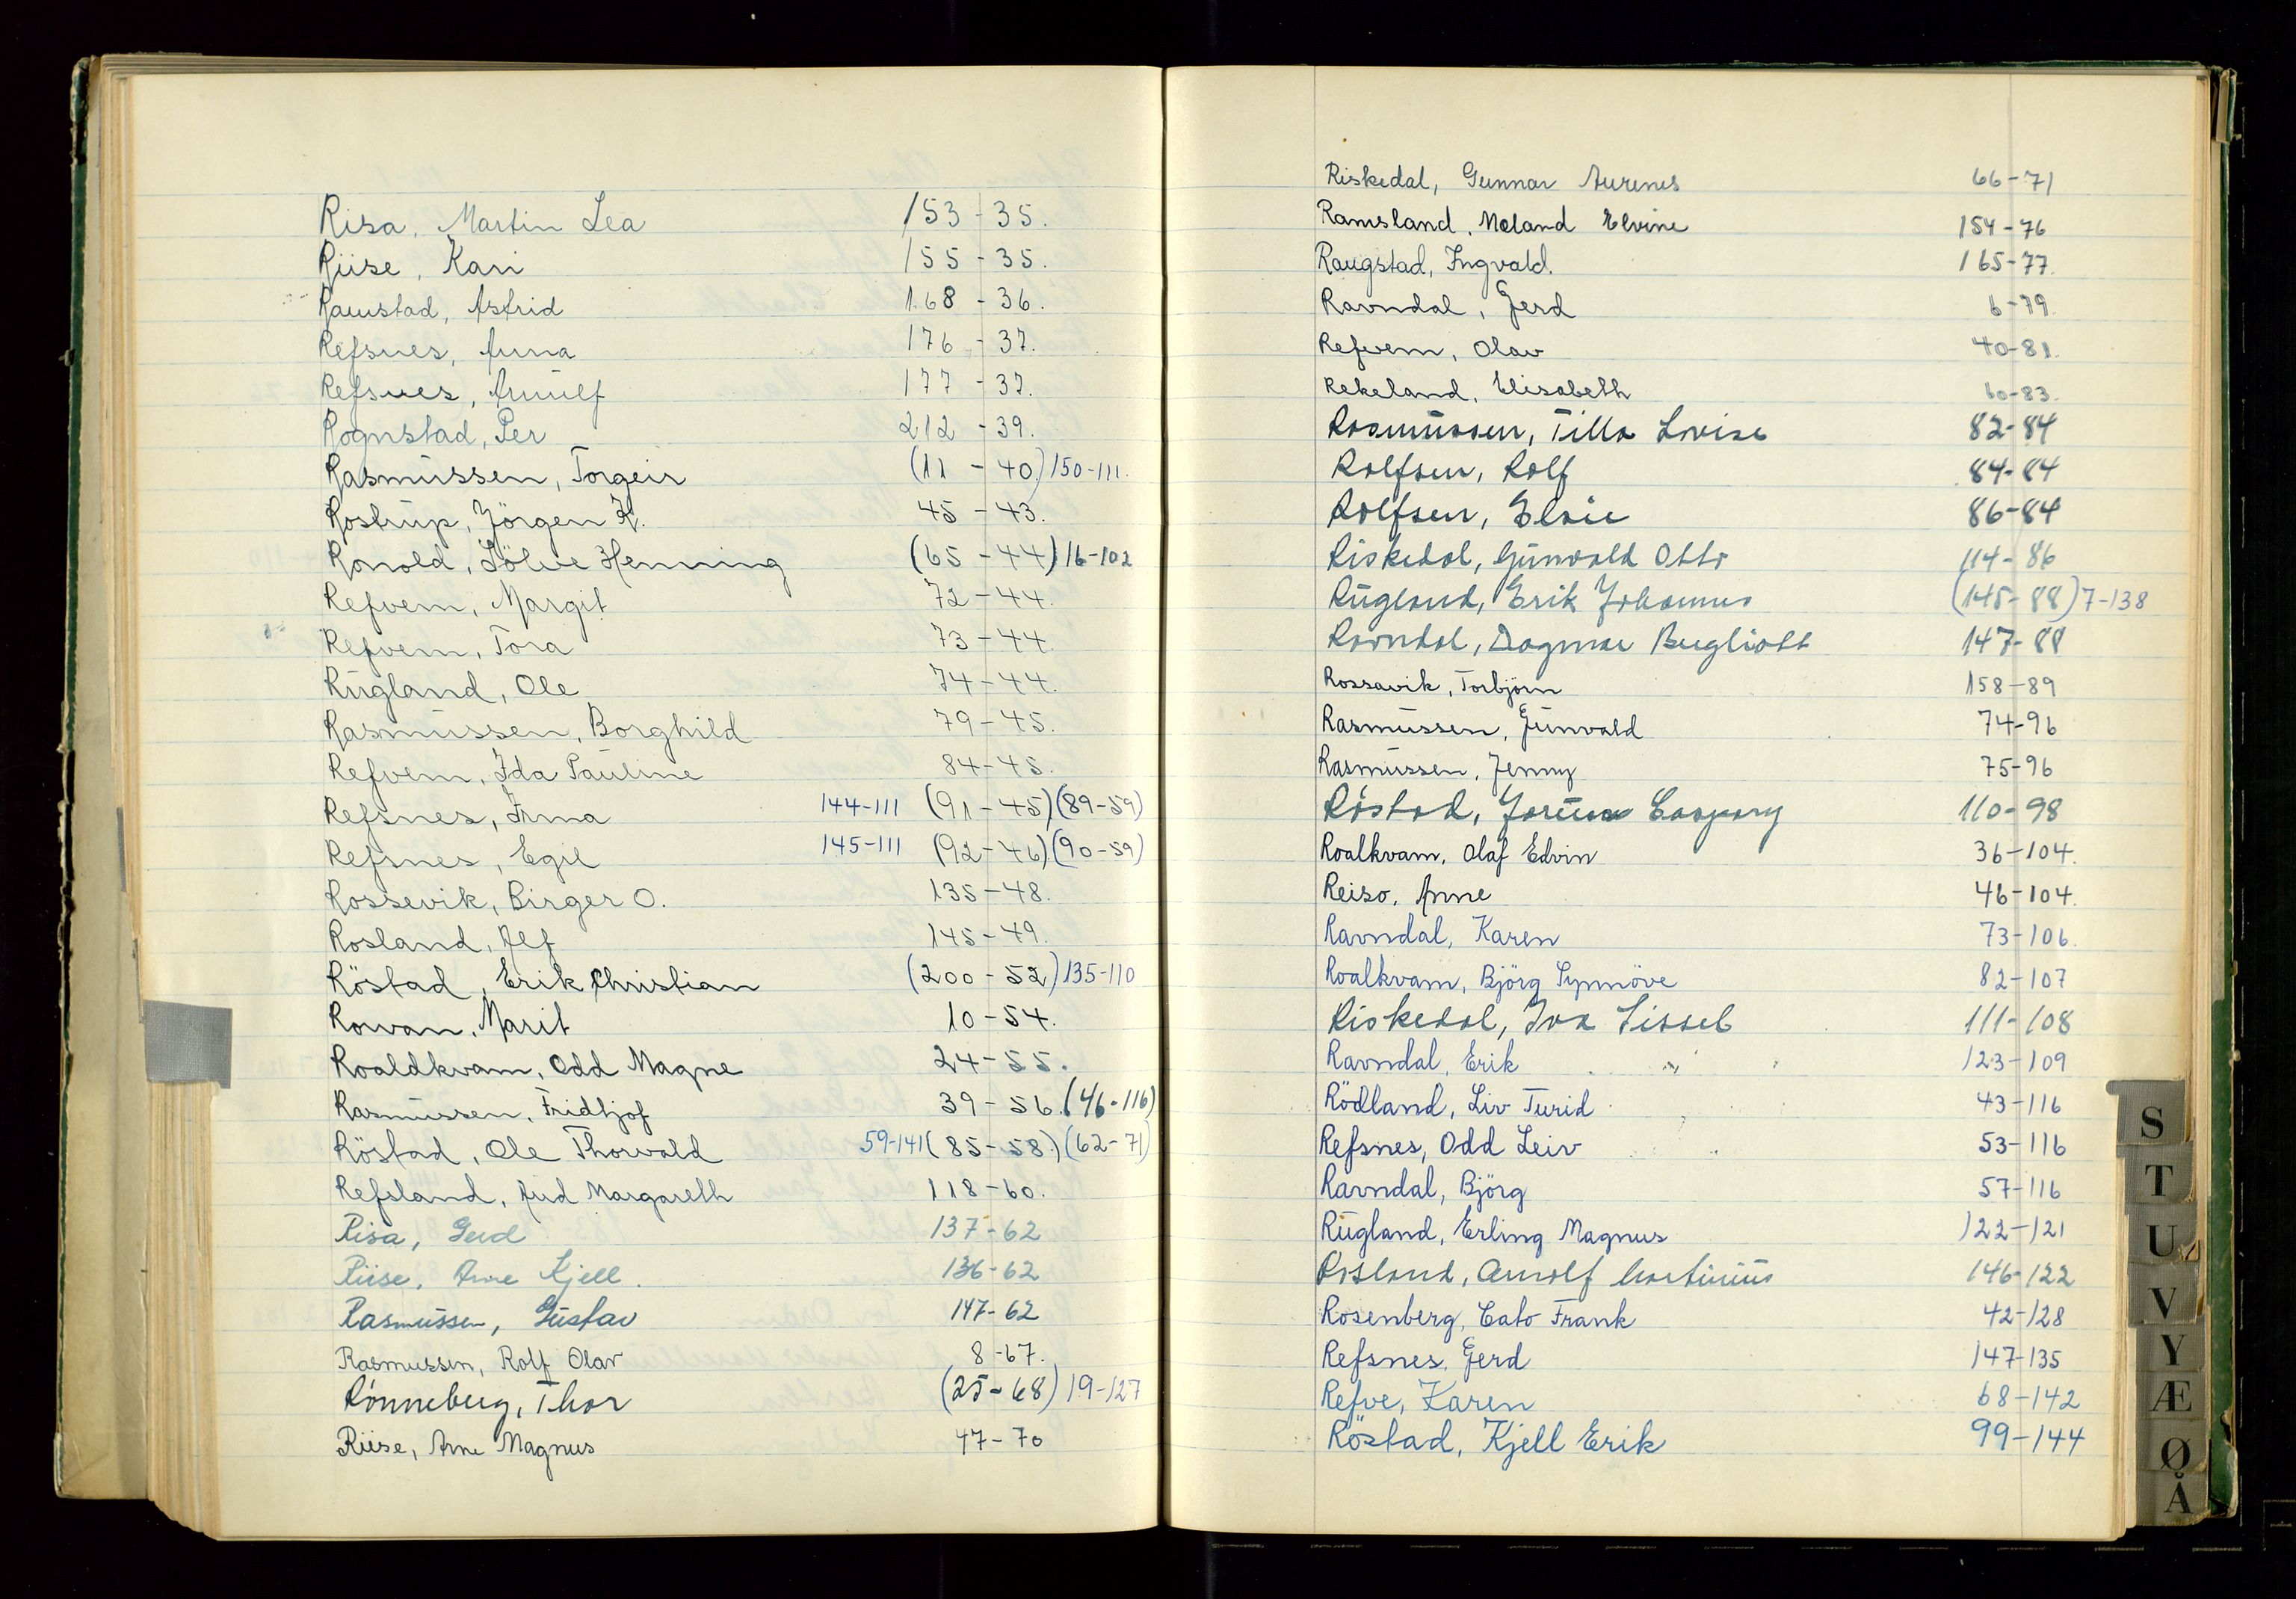 Risa, Martin Lea 153-35.
Riise, Kari 155-35.
Raustad, Astrid 168-36.
Refsnes, Anna 176-37.
Refsnes, Arnulf 177-37.
Rognstad, Per 212-39.
Rasmussen, Torgeir (11-40) 150-111.
Rostrup, Jörgen K. 45-43.
Ronold, Sölve Henning (65-44) 16-102
Refvem, Margit 72-44.
Refvem, Tora 73-44.
Rugland, Ole 74-44.
Rasmussen, Borghild 79-45.
Refvem, Ida Pauline 84-45.
Refsnes, Irma 144-111 (91-45)(89-59)
Refsnes, Egil 145-111 (92-46)(90-59)
Rossevik, Birger O. 135-48.
Rosland, Alf 145-49.
Röstad, Erik Christian (200-52) 135-110
Rowan, Marit 10-54.
Roaldkvam, Odd Magne 24-55.
Rasmussen, Fridtjof 39-56. (46-116)
Röstad, Ole Thorvald 59-141 (85-58.) (62-71)
Refsland, Aud Margareth 118-60.
Risa, Gerd 137-62
Riise, Arne Kjell. 136-62
Rasmussen, Gustav 147-62
Rasmussen, Rolf Olav 8-67.
Rönneberg, Thor (25-68) 19-127
Riise, Arne Magnus 47-70
Riskedal, Gunnar Aurenes 66-71
Ramsland, Meland Elvine 154-76
Raugstad, Ingvald. 165-77.
Ravndal, Gerd 6-79.
Refvem, Olav 40-81.
Rekeland, Elisabeth 60-83.
Rasmussen, Tilla Lovise 82-84
Rolfsen, Rolf 84-84
Rolfsen, Elsie 86-84
Riskedal, Gunvald Otto 114-86
Rugland, Erik Johannes (145-88) 7-138
Ravndal, Dagmar Bergliott 147-88
Rossavik, Torbjörn 158-89
Rasmussen, Gunvald 74-96
Rasmussen, Jenny 75-96
Röstad, Caspary 110-98
Roalkvam, Olaf Edvin 36-104.
Reiso, Anne 46-104.
Ravndal, Karen 73-106.
Roalkvam, Björg Synnöve 82-107
Riskedal, Iva Sissel 111-108
Ravndal, Erik 123-109
Rödland, Liv Turid 43-116
Refsnes, Odd Leiv 53-116
Ravndal, Björg 57-116
Rugland, Erling Magnus 122-121
Rosland, Arnolf Martinius 146-122
Rosenberg, Cato Frank 42-128
Refsnes, Gerd 147-135
Refve, Karen 68-142
Röstad, Kjell Erik 99-144
S
T
U
V
Y
Æ
Ø
Å